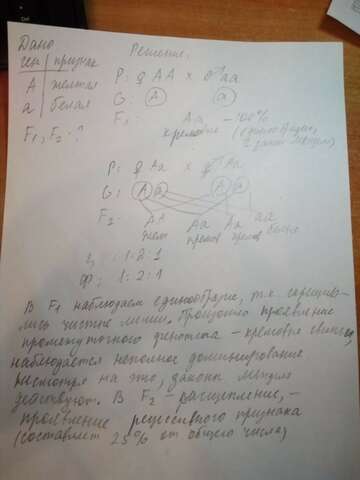 Дано
ген | признак
A | желтая
a | белая
F₁, F₂ - ?
Решение:
P: ♀ AA × ♂ aa
G: A a
F₁: Aa - 100%
кремовые (единообразие,
закон Менделя)
P: ♀ Aa × ♂ Aa
G: A a A a
F₂: AA Aa Aa aa
жел крем крем белая
1:2:1
Ф: 1:2:1
В F₁ наблюдаем единообразие, т.к. скрещива-
лись чистые линии. Произошло проявление
промежуточного фенотипа - кремовые свинки,
наблюдается неполное доминирование
несмотря на это, законы Менделя
действуют. В F₂ - расщепление, -
проявление рецессивного признака
(составляет 25% от общего числа)